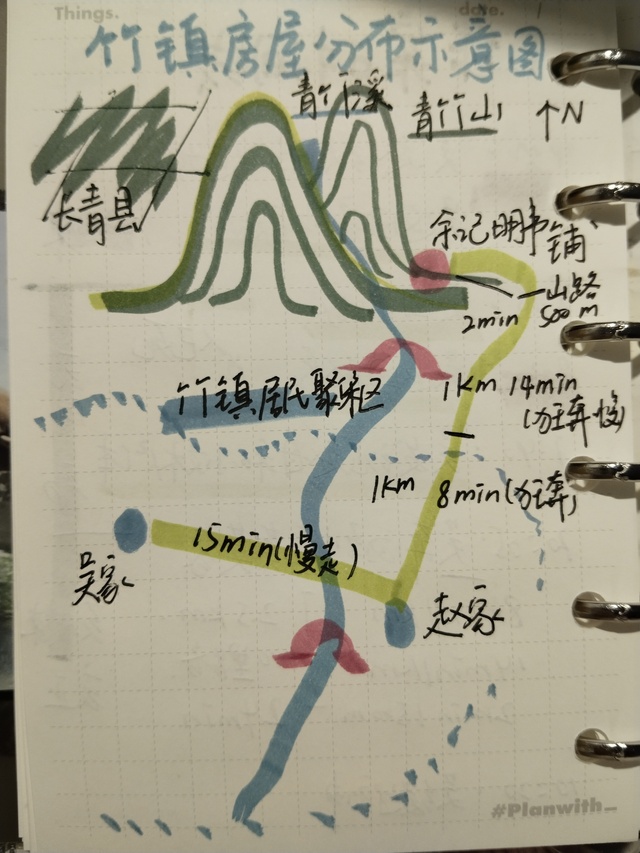 Things.
date. /
竹镇房屋分布示意图
青竹溪
青竹山
↑N
长青县
余记明书铺
山路
500m
2min
竹镇居民聚集区
1Km 14min
1Km 8min(狂奔)
15min(慢走)
吴家
赵家
#Planwith_